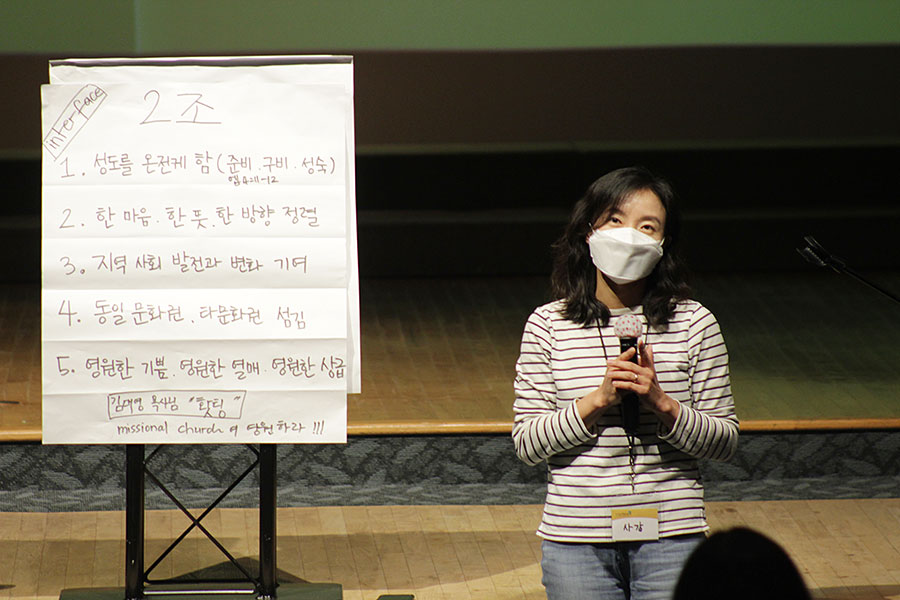 interface
2조
1. 성도를 온전케 함 (준비 . 구비 . 성숙)
엡4:11-12
2. 한 마음 . 한 뜻 . 한 방향 정렬
3. 지역 사회 발전과 변화 기여
4. 동일 문화권 . 타문화권 섬김
5. 영원한 기쁨 . 영원한 열매 . 영원한 상급
목사님 "핫팀"
missional church 여 영원하라 !!!